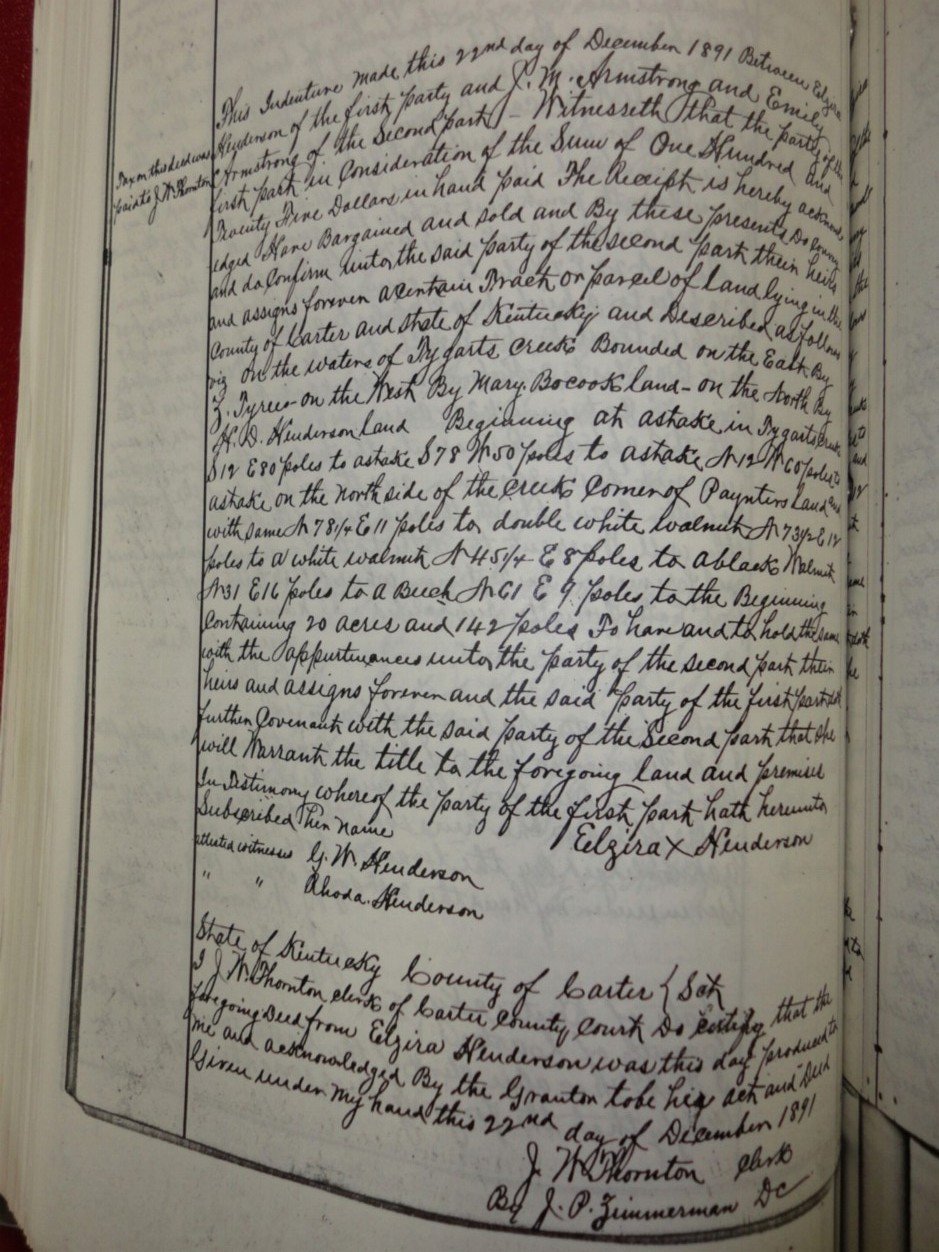 This Indenture made this 22nd day of December 1891 Between Elzira
Henderson of the first party and J. M. Armstrong and Emily
Armstrong of the Second part - Witnesseth that the party of the
first part in Consideration of the Sum of One Hundred and
Twenty Five Dollars in hand paid The Receipt is hereby acknowl
edged Have Bargained and sold and By these presents Do
and do Confirm unto the said party of the second part their heirs
and assigns forever a certain Tract or parcel of land lying in the
County of Carter and State of Kentucky and Described as follows
viz on the waters of Tygarts Creek Bounded on the East By
Z. Tyree on the West By Mary Bocook land - on the North By
H. D. Henderson land Beginning at a stake in Tygarts Creek
S 12 E 80 poles to a stake S 78 W 50 poles to a stake N 12 W 60 poles to
a stake on the north side of the creek Corner of Paynters Land and
with same N 78 1/4 E 11 poles to double white walnut N 73 1/2 E 12
poles to a white walnut N 45 1/4 E 8 poles to a black Walnut
N 31 E 16 poles to a Beech N 61 E 9 poles to the Beginning
Containing 20 acres and 142 poles To have and to hold the same
with the appurtinances unto the party of the second part their
heirs and assigns forever and the said party of the first part
further Covenant with the said party of the Second part that she
will Warrant the title to the foregoing land and premises
In Testimony whereof the party of the first part hath hereunto
Subscribed Her name
Elzira X Henderson
attested witnesses G. W. Henderson
" " Rhoda Henderson
Tax on this deed was
paid to J W Thornton
State of Kentucky County of Carter { Sct
I J. W. Thornton clerk of Carter County Court Do certify that the
foregoing Deed from Elzira Henderson was this day produced to
me and acknowledged By the Grantor to be his act and Deed
Given under my hand this 22nd day of December 1891
J. W. Thornton Clerk
By J. P. Zimmerman DC